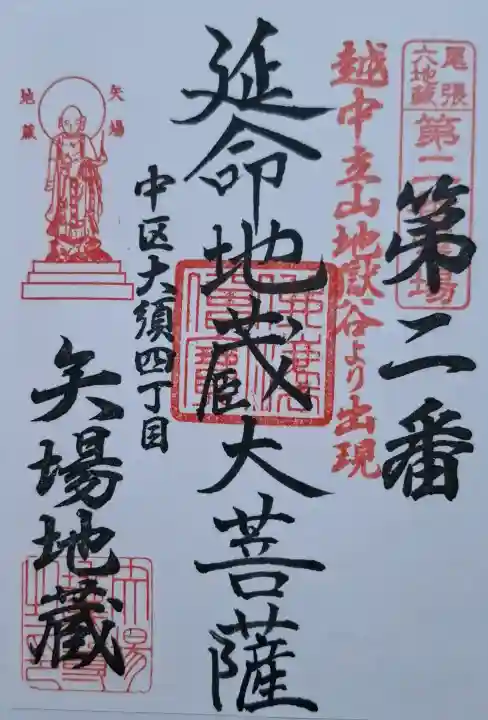 尾張
六地蔵
第二
場
第二番
越中立山地獄谷より出現
延命地蔵大菩薩
中区大須四丁目
矢場
地蔵
矢場地蔵